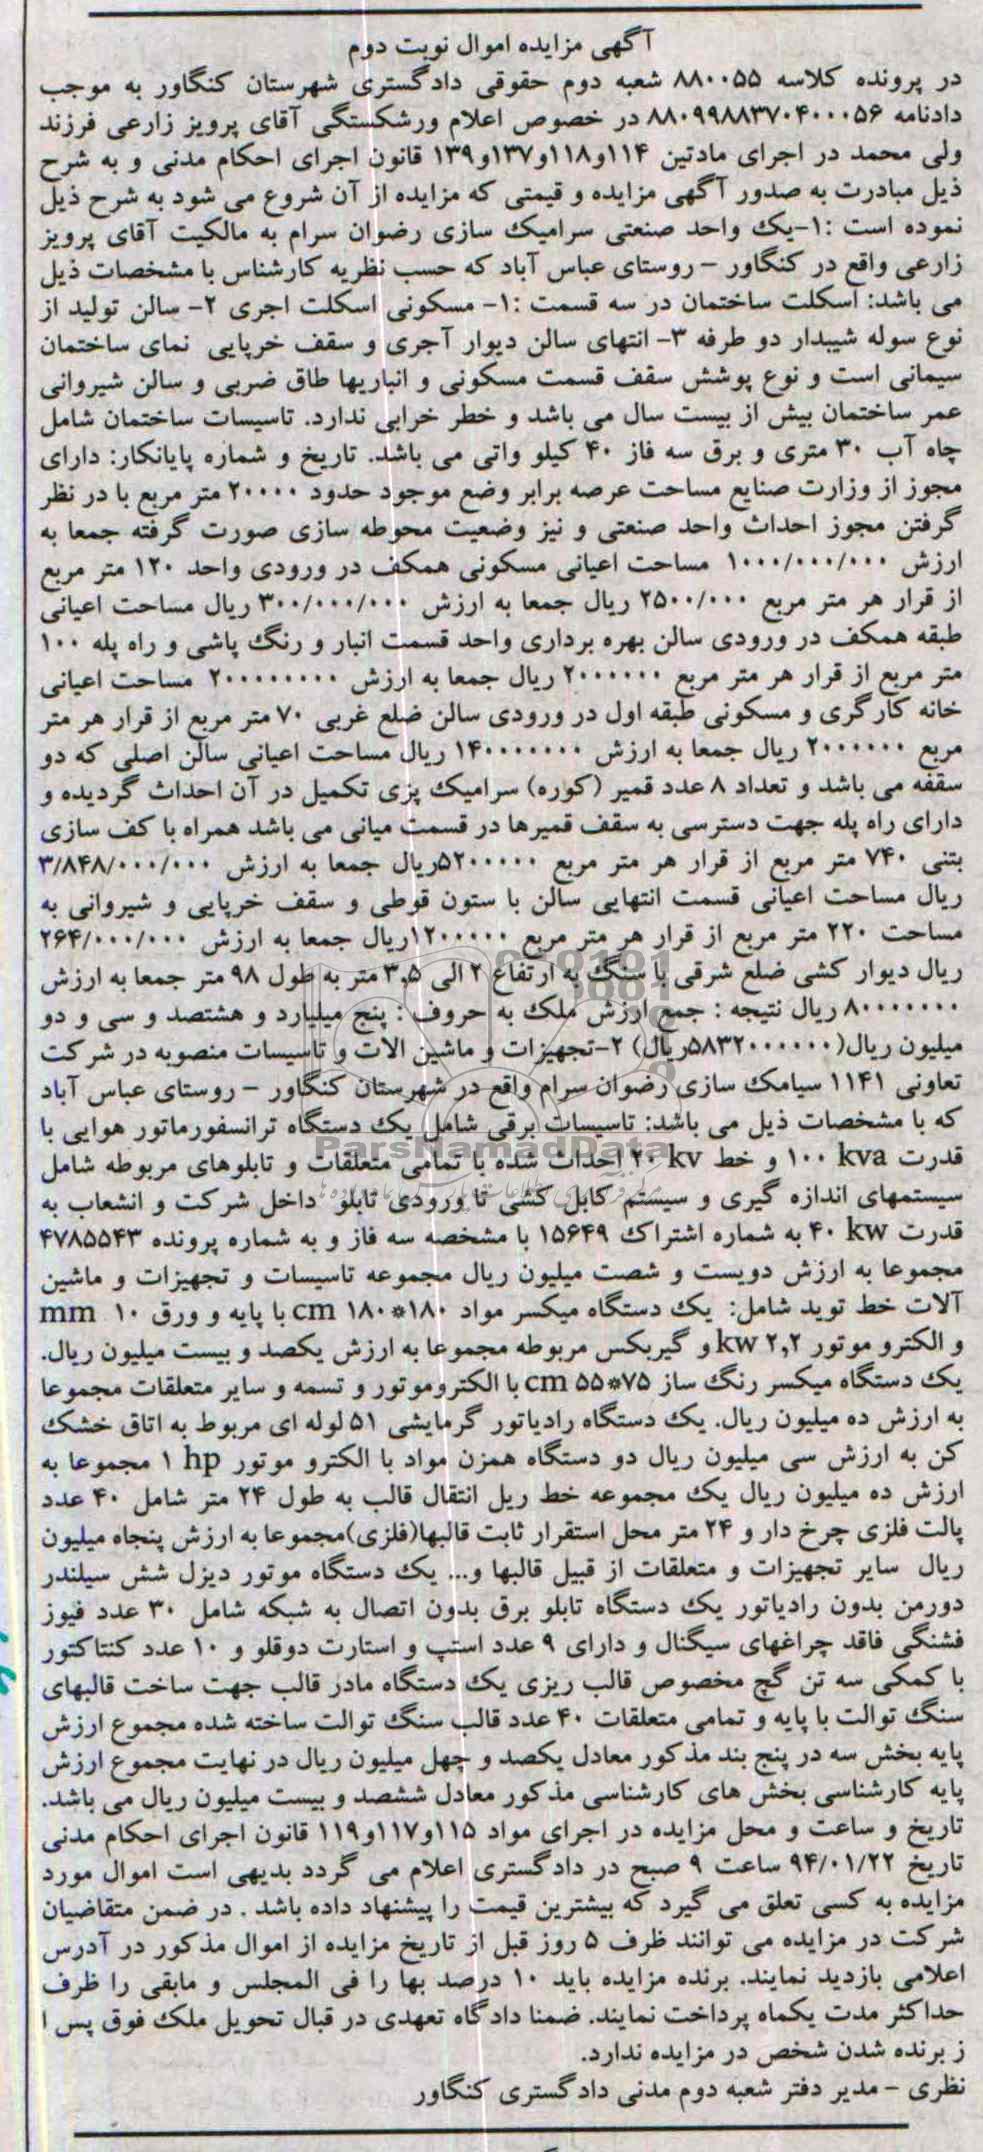 آگهی مزایده اموال نوبت دوم
در پرونده کلاسه ۸۸۰۰۵۵ شعبه دوم حقوقی دادگستری شهرستان کنگاور به موجب
دادنامه ۸۸۰۹۹۸۸۳۷۰۴۰۰۰۵۶ در خصوص اعلام ورشکستگی آقای پرویز زارعی فرزند
ولی محمد در اجرای مادتین ۱۱۴و۱۱۸و۱۳۷و۱۳۹ قانون اجرای احکام مدنی و به شرح
ذیل مبادرت به صدور آگهی مزایده و قیمتی که مزایده از آن شروع می شود به شرح ذیل
نموده است :۱-یک واحد صنعتی سرامیک سازی رضوان سرام به مالکیت آقای پرویز
زارعی واقع در کنگاور – روستای عباس آباد که حسب نظریه کارشناس با مشخصات ذیل
می باشد: اسکلت ساختمان در سه قسمت :۱- مسکونی اسکلت اجری ۲- سالن تولید از
نوع سوله شیبدار دو طرفه ۳- انتهای سالن دیوار آجری و سقف خرپایی نمای ساختمان
سیمانی است و نوع پوشش سقف قسمت مسکونی و انباریها طاق ضربی و سالن شیروانی
عمر ساختمان بیش از بیست سال می باشد و خطر خرابی ندارد. تاسیسات ساختمان شامل
چاه آب ۳۰ متری و برق سه فاز ۴۰ کیلو واتی می باشد. تاریخ و شماره پایانکار: دارای
مجوز از وزارت صنایع مساحت عرصه برابر وضع موجود حدود ۲۰۰۰۰ متر مربع با در نظر
گرفتن مجوز احداث واحد صنعتی و نیز وضعیت محوطه سازی صورت گرفته جمعا به
ارزش ۱۰۰۰/۰۰۰/۰۰۰ مساحت اعیانی مسکونی همکف در ورودی واحد ۱۲۰ متر مربع
از قرار هر متر مربع ۲۵۰۰/۰۰۰ ریال جمعا به ارزش ۳۰۰/۰۰۰/۰۰۰ ریال مساحت اعیانی
طبقه همکف در ورودی سالن بهره برداری واحد قسمت انبار و رنگ پاشی و راه پله ۱۰۰
متر مربع از قرار هر متر مربع ۲۰۰۰۰۰۰ ریال جمعا به ارزش ۲۰۰۰۰۰۰۰۰ مساحت اعیانی
خانه کارگری و مسکونی طبقه اول در ورودی سالن ضلع غربی ۷۰ متر مربع از قرار هر متر
مربع ۲۰۰۰۰۰۰ ریال جمعا به ارزش ۱۴۰۰۰۰۰۰۰ ریال مساحت اعیانی سالن اصلی که دو
سقفه می باشد و تعداد ۸ عدد قمیر (کوره) سرامیک پزی تکمیل در آن احداث گردیده و
دارای راه پله جهت دسترسی به سقف قمیرها در قسمت میانی می باشد همراه با کف سازی
بتنی ۷۴۰ متر مربع از قرار هر متر مربع ۵۲۰۰۰۰۰ریال جمعا به ارزش ۳/۸۴۸/۰۰۰/۰۰۰
ریال مساحت اعیانی قسمت انتهایی سالن با ستون قوطی و سقف خرپایی و شیروانی به
مساحت ۲۲۰ متر مربع از قرار هر متر مربع ۱۲۰۰۰۰۰ریال جمعا به ارزش ۲۶۴/۰۰۰/۰۰۰
ریال دیوار کشی ضلع شرقی با سنگ به ارتفاع ۲ الی ۳,۵ متر به طول ۹۸ متر جمعا به ارزش
۸۰۰۰۰۰۰۰ ریال نتیجه : جمع ارزش ملک به حروف : پنج میلیارد و هشتصد و سی و دو
میلیون ریال(۵۸۳۲۰۰۰۰۰۰ریال) ۲-تجهیزات و ماشین الات و تاسیسات منصوبه در شرکت
تعاونی ۱۱۴۱ سیامک سازی رضوان سرام واقع در شهرستان کنگاور – روستای عباس آباد
که با مشخصات ذیل می باشد: تاسیسات برقی شامل یک دستگاه ترانسفورماتور هوایی با
قدرت ۱۰۰ kva و خط ۲۰ kv احداث شده با تمامی متعلقات و تابلوهای مربوطه شامل
سیستمهای اندازه گیری و سیستم کابل کشی تا ورودی تابلو داخل شرکت و انشعاب به
قدرت ۴۰ kw به شماره اشتراک ۱۵۶۴۹ با مشخصه سه فاز و به شماره پرونده ۴۷۸۵۵۴۳
مجموعا به ارزش دویست و شصت میلیون ریال مجموعه تاسیسات و تجهیزات و ماشین
آلات خط توید شامل: یک دستگاه میکسر مواد ۱۸۰*۱۸۰ cm با پایه و ورق ۱۰ mm
و الکترو موتور ۲,۲ kw و گیربکس مربوطه مجموعا به ارزش یکصد و بیست میلیون ریال.
یک دستگاه میکسر رنگ ساز ۷۵*۵۵ cm با الکتروموتور و تسمه و سایر متعلقات مجموعا
به ارزش ده میلیون ریال. یک دستگاه رادیاتور گرمایشی ۵۱ لوله ای مربوط به اتاق خشک
کن به ارزش سی میلیون ریال دو دستگاه همزن مواد با الکترو موتور ۱ hp مجموعا به
ارزش ده میلیون ریال یک مجموعه خط ریل انتقال قالب به طول ۲۴ متر شامل ۴۰ عدد
پالت فلزی چرخ دار و ۲۴ متر محل استقرار ثابت قالبها(فلزی)مجموعا به ارزش پنجاه میلیون
ریال سایر تجهیزات و متعلقات از قبیل قالبها و... یک دستگاه موتور دیزل شش سیلندر
دورمن بدون رادیاتور یک دستگاه تابلو برق بدون اتصال به شبکه شامل ۳۰ عدد فیوز
فشنگی فاقد چراغهای سیگنال و دارای ۹ عدد استپ و استارت دوقلو و ۱۰ عدد کنتاکتور
با کمکی سه تن گچ مخصوص قالب ریزی یک دستگاه مادر قالب جهت ساخت قالبهای
سنگ توالت با پایه و تمامی متعلقات ۴۰ عدد قالب سنگ توالت ساخته شده مجموع ارزش
پایه بخش سه در پنج بند مذکور معادل یکصد و چهل میلیون ریال در نهایت مجموع ارزش
پایه کارشناسی بخش های کارشناسی مذکور معادل ششصد و بیست میلیون ریال می باشد.
تاریخ و ساعت و محل مزایده در اجرای مواد ۱۱۵و۱۱۷و۱۱۹ قانون اجرای احکام مدنی
تاریخ ۹۴/۰۱/۲۲ ساعت ۹ صبح در دادگستری اعلام می گردد بدیهی است اموال مورد
مزایده به کسی تعلق می گیرد که بیشترین قیمت را پیشنهاد داده باشد . در ضمن متقاضیان
شرکت در مزایده می توانند ظرف ۵ روز قبل از تاریخ مزایده از اموال مذکور در آدرس
اعلامی بازدید نمایند. برنده مزایده باید ۱۰ درصد بها را فی المجلس و مابقی را ظرف
حداکثر مدت یکماه پرداخت نمایند. ضمنا دادگاه تعهدی در قبال تحویل ملک فوق پس ا
ز برنده شدن شخص در مزایده ندارد.
نظری – مدیر دفتر شعبه دوم مدنی دادگستری کنگاور
ParsNamadData